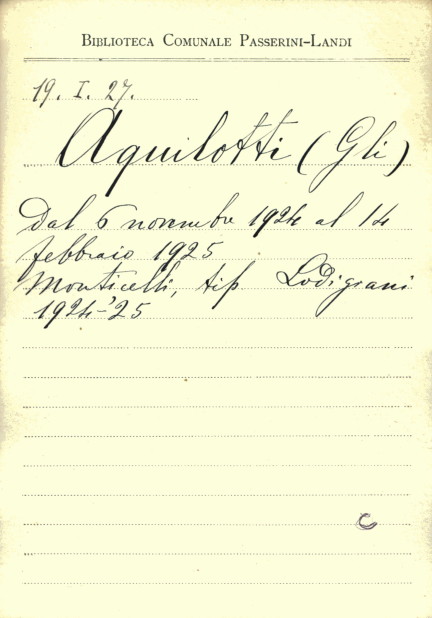 BIBLIOTECA COMUNALE PASSERINI-LANDI
19. I. 27.
Aquilotti (Gli)
Dal 6 novembre 1924 al 14
febbraio 1925
Monticelli, tip. Lodigiani
1924-'25
C